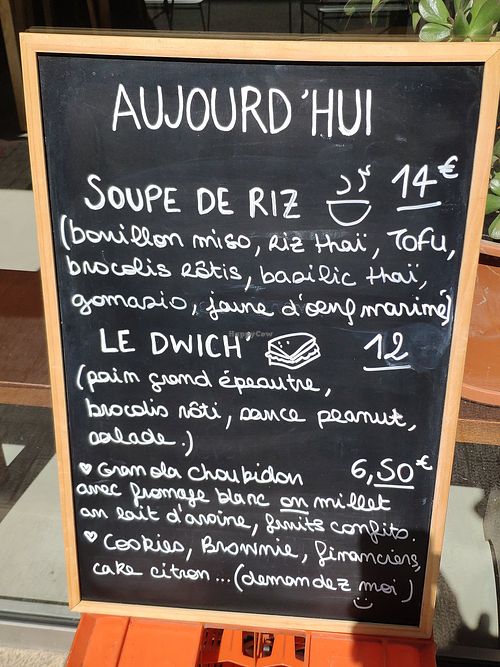 AUJOURD'HUI
SOUPE DE RIZ 14€
(bouillon miso, riz thaï, TOFU,
brocolis rôtis, basilic thaï,
gomasio, jaune d'oeuf mariné)
LE DWICH' 12
(pain grand épeautre,
brocolis rôti, sauce peanut,
salade.)
♥ Granola choupidon 6,50€
avec fromage blanc ou millet
au lait d'avoine, fruits confits.
♥ Cookies, Brownie, financiers,
cake citron... (demandez moi)
HappyCow